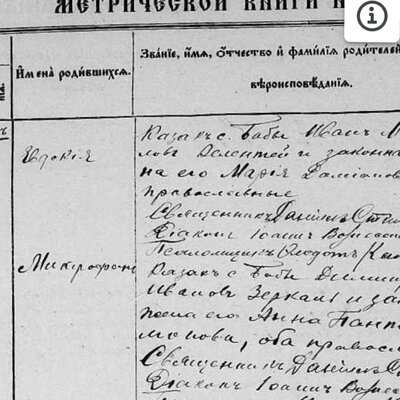 МЕТРИЧЕСКОЙ КНИГИ
Имена родившихся.
Званіе, имя, отчество и фамилія родителей
вѣроисповѣданія.
Евдокія
Казакъ с. Бабы Иванъ
законна
на его Марія Даміанов
православные
Священникъ Даніилъ
Діаконъ Іоаннъ Вознесен
Псаломщикъ Ѳеодотъ
Митрофанъ
Казакъ с. Бабы Димит
Ивановъ Зеркаль и за
жена его Анна Панте
монова, оба правосл
Священникъ Даніилъ
Діаконъ Іоаннъ Возне